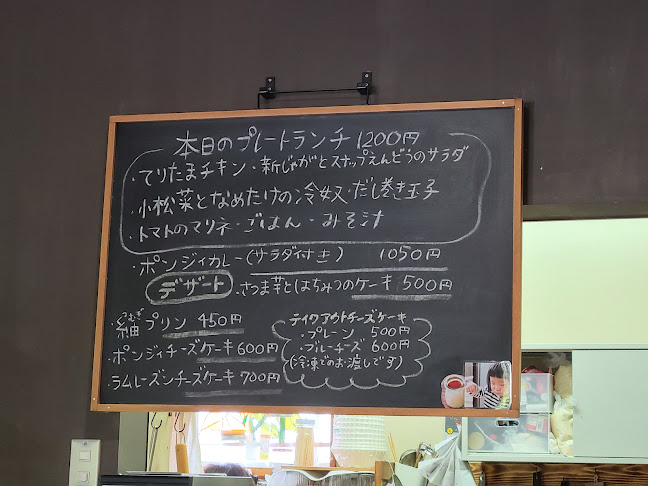 本日のプレートランチ 1200円
・てりたまチキン・新じゃがとスナップえんどうのサラダ
・小松菜となめたけの冷奴・だし巻き玉子
・トマトのマリネ・ごはん・みそ汁
・ポンジィカレー(サラダ付き) 1050円
デザート ・さつま芋とはちみつのケーキ 500円
つむぎ
・紬プリン 450円
・ポンジィチーズケーキ 600円
・ラムレーズンチーズケーキ 700円
テイクアウトチーズケーキ
・プレーン 500円
・ブルーチーズ 600円
(冷凍でのお渡しです)